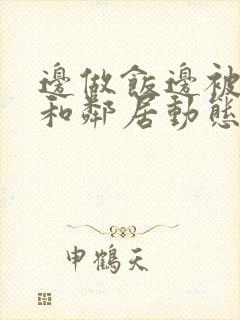 邊做飯邊被
和鄰居動態
申鶴天